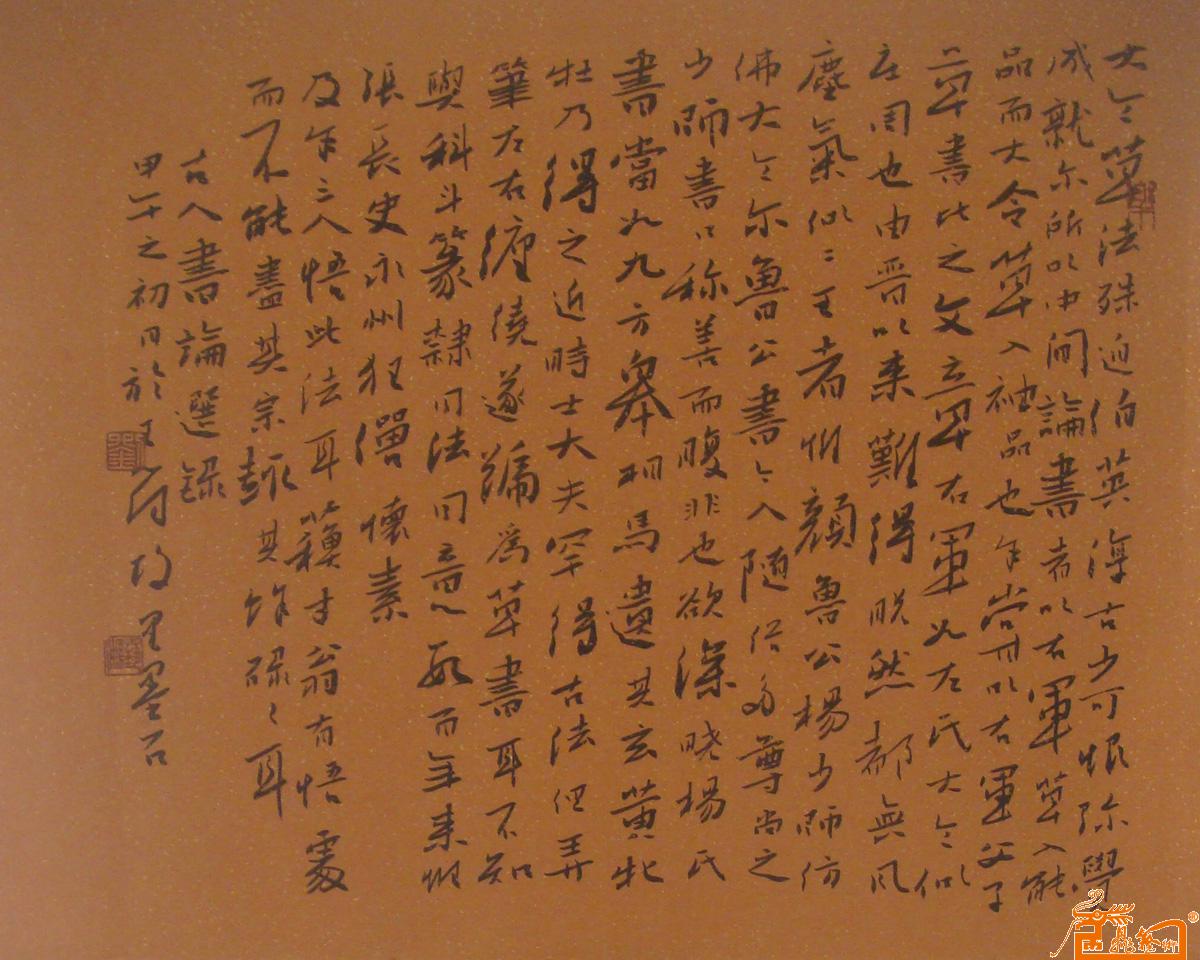 大令草法殊迫伯英淳古少可恨弥覺
成就尔所以中间論書者以右軍草入能
品而大令草入神品也余嘗以右軍父子
草書比之文章右軍如左氏大令似
庄周也由晋以来難得脱然都無風
塵氣似二王者惟顔魯公楊少師仿
佛大令尔魯公書今人随俗多尊尚之
少師書口称善而腹非也欲深曉楊氏
書當如九方皋相馬遺其玄黄牝
牡乃得之近時士大夫罕得古法但弄
筆左右纏繞遂號爲草書耳不知
與科斗篆隸同法同意数百年来惟
張長史永州狂僧懷素
及余三人悟此法耳蘇才翁有悟處
而不能盡其宗趣其餘碌々耳
古人書論選録
甲午之初日於